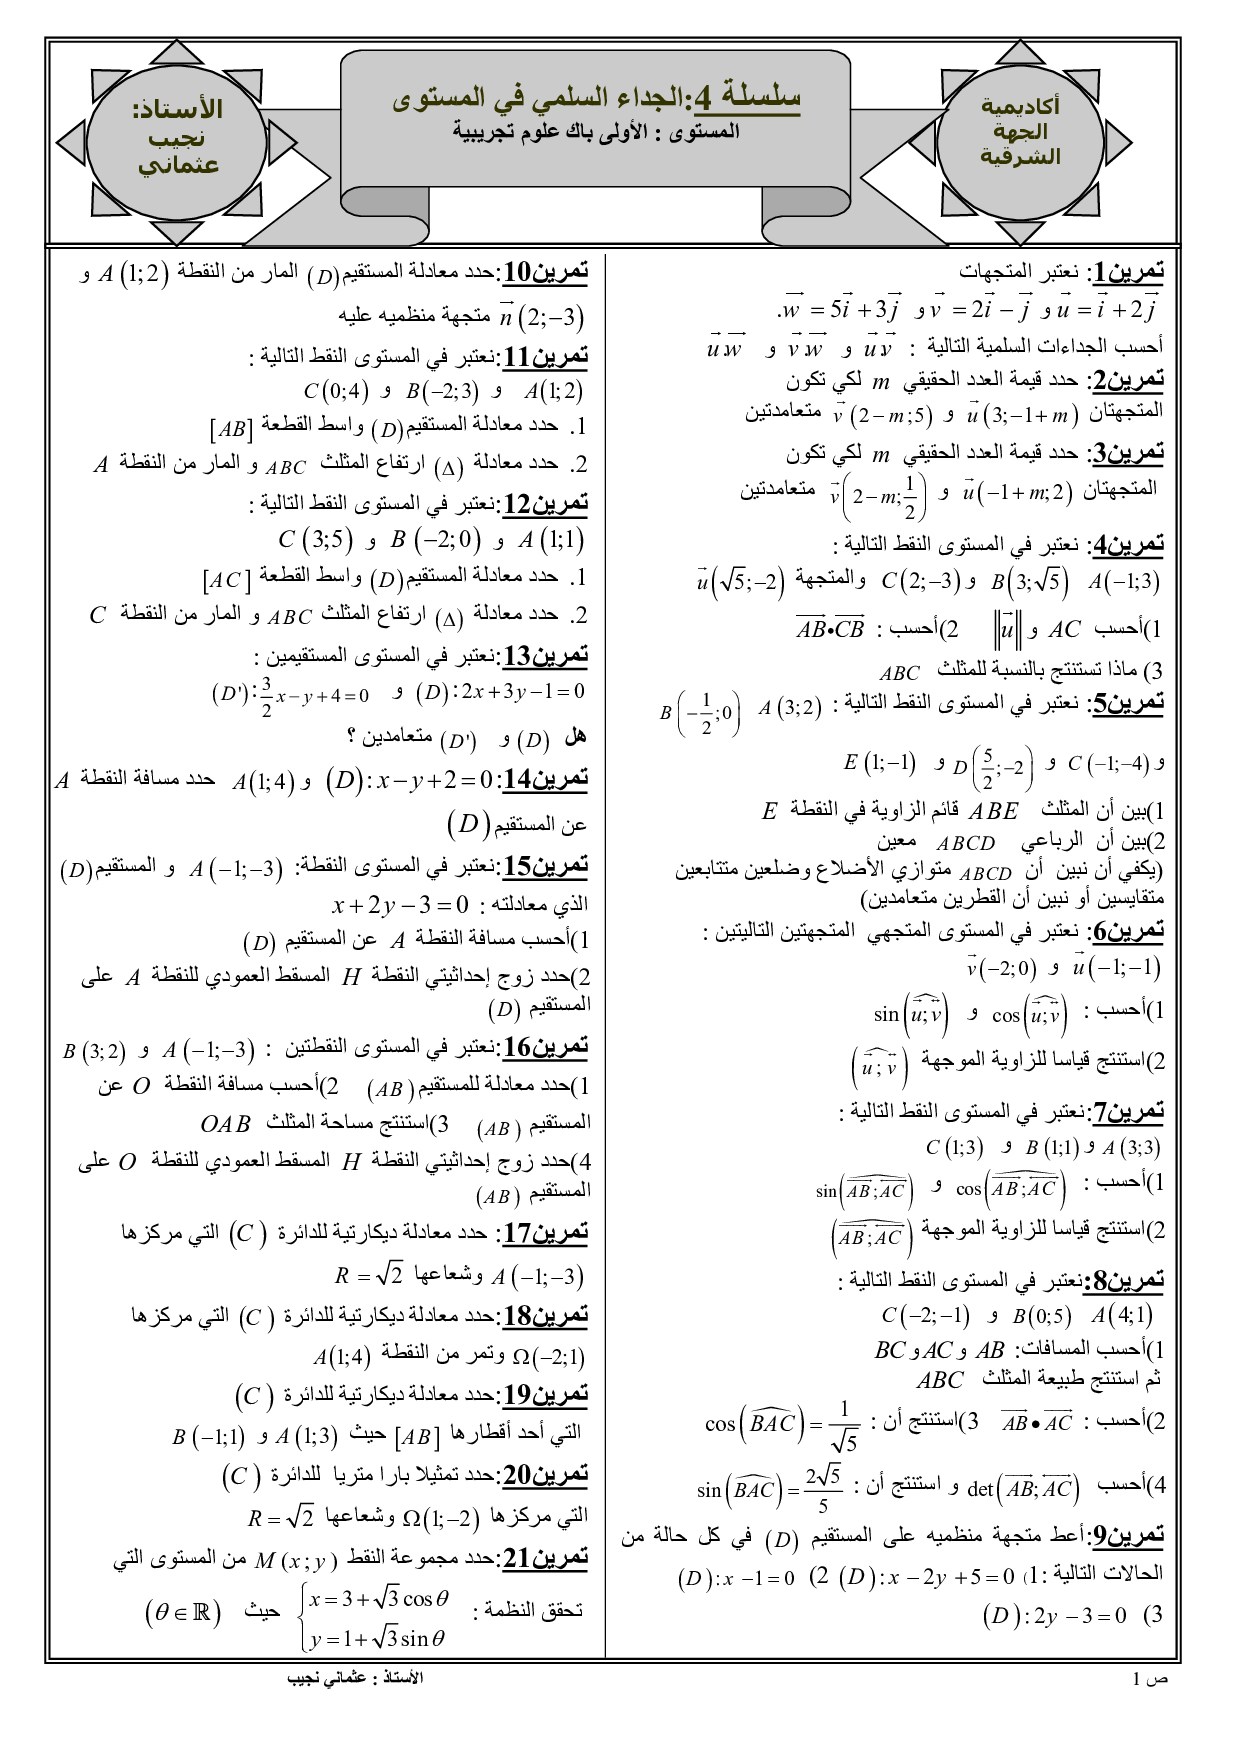 أكاديمية
الجهة
الشرقية
سلسلة 4:الجداء السلمي في المستوى
المستوى : الأولى باك علوم تجريبية
الأستاذ:
نجيب
عثماني
تمرين1: نعتبر المتجهات
u⃗ = i⃗ + 2j⃗ و v⃗ = 2i⃗ − j⃗ و w⃗ = 5i⃗ + 3j⃗.
أحسب الجداءات السلمية التالية : u⃗.v⃗ و v⃗.w⃗ و u⃗.w⃗
تمرين2: حدد قيمة العدد الحقيقي m لكي تكون
المتجهتان u⃗(3;−1+m) و v⃗(2−m;5) متعامدتين
تمرين3: حدد قيمة العدد الحقيقي m لكي تكون
المتجهتان u⃗(−1+m;2) و v⃗(2−m;1/2) متعامدتين
تمرين4: نعتبر في المستوى النقط التالية :
A(−1;3) B(3;√5) و C(2;−3) والمتجهة u⃗(√5;−2)
1)أحسب AC و ‖u⃗‖ 2)أحسب : AB⃗•CB⃗
3) ماذا تستنتج بالنسبة للمثلث ABC
تمرين5: نعتبر في المستوى النقط التالية : A(3;2) B(−1/2;0)
و C(−1;−4) و D(5/2;−2) و E(1;−1)
1)بين أن المثلث ABE قائم الزاوية في النقطة E
2)بين أن الرباعي ABCD معين
(يكفي أن نبين أن ABCD متوازي الأضلاع وضلعين متتابعين
متقايسين أو نبين أن القطرين متعامدين)
تمرين6: نعتبر في المستوى المتجهي المتجهتين التاليتين :
u⃗(−1;−1) و v⃗(−2;0)
1)أحسب : cos(u⃗;v⃗) و sin(u⃗;v⃗)
2)استنتج قياسا للزاوية الموجهة (u⃗;v⃗)
تمرين7:نعتبر في المستوى النقط التالية :
A(3;3) و B(1;1) و C(1;3)
1)أحسب : cos(AB⃗;AC⃗) و sin(AB⃗;AC⃗)
2)استنتج قياسا للزاوية الموجهة (AB⃗;AC⃗)
تمرين8:نعتبر في المستوى النقط التالية :
A(4;1) B(0;5) و C(−2;−1)
1)أحسب المسافات: AB وAC وBC
ثم استنتج طبيعة المثلث ABC
2)أحسب : AB⃗•AC⃗ 3)استنتج أن : cos(BAC) = 1/√5
4)أحسب det(AB⃗;AC⃗) و استنتج أن : sin(BAC) = 2√5/5
تمرين9:أعط متجهة منظميه على المستقيم (D) في كل حالة من
الحالات التالية :1) (D): x−2y+5=0 2) (D): x−1=0
3) (D): 2y−3=0
تمرين10:حدد معادلة المستقيم(D) المار من النقطة A(1;2) و
n⃗(2;−3) متجهة منظميه عليه
تمرين11:نعتبر في المستوى النقط التالية :
A(1;2) و B(−2;3) و C(0;4)
1. حدد معادلة المستقيم(D) واسط القطعة [AB]
2. حدد معادلة (Δ) ارتفاع المثلث ABC و المار من النقطة A
تمرين12:نعتبر في المستوى النقط التالية :
A(1;1) و B(−2;0) و C(3;5)
1. حدد معادلة المستقيم(D) واسط القطعة [AC]
2. حدد معادلة (Δ) ارتفاع المثلث ABC و المار من النقطة C
تمرين13:نعتبر في المستوى المستقيمين :
(D): 2x+3y−1=0 و (D'): 3/2 x−y+4=0
هل (D) و (D') متعامدين ؟
تمرين14: (D): x−y+2=0 و A(1;4) حدد مسافة النقطة A
عن المستقيم(D)
تمرين15:نعتبر في المستوى النقطة: A(−1;−3) و المستقيم(D)
الذي معادلته : x+2y−3=0
1)أحسب مسافة النقطة A عن المستقيم (D)
2)حدد زوج إحداثيتي النقطة H المسقط العمودي للنقطة A على
المستقيم (D)
تمرين16:نعتبر في المستوى النقطتين : A(−1;−3) و B(3;2)
1)حدد معادلة للمستقيم(AB) 2)أحسب مسافة النقطة O عن
المستقيم (AB) 3)استنتج مساحة المثلث OAB
4)حدد زوج إحداثيتي النقطة H المسقط العمودي للنقطة O على
المستقيم (AB)
تمرين17: حدد معادلة ديكارتية للدائرة (C) التي مركزها
A(−1;−3) وشعاعها R=√2
تمرين18:حدد معادلة ديكارتية للدائرة (C) التي مركزها
Ω(−2;1) وتمر من النقطة A(1;4)
تمرين19:حدد معادلة ديكارتية للدائرة (C)
التي أحد أقطارها [AB] حيث A(1;3) و B(−1;1)
تمرين20:حدد تمثيلا بارا متريا للدائرة (C)
التي مركزها Ω(1;−2) وشعاعها R=√2
تمرين21:حدد مجموعة النقط M(x;y) من المستوى التي
تحقق النظمة : { x=3+√3cosθ ; y=1+√3sinθ حيث (θ∈ℝ)
ص 1
الأستاذ : عثماني نجيب